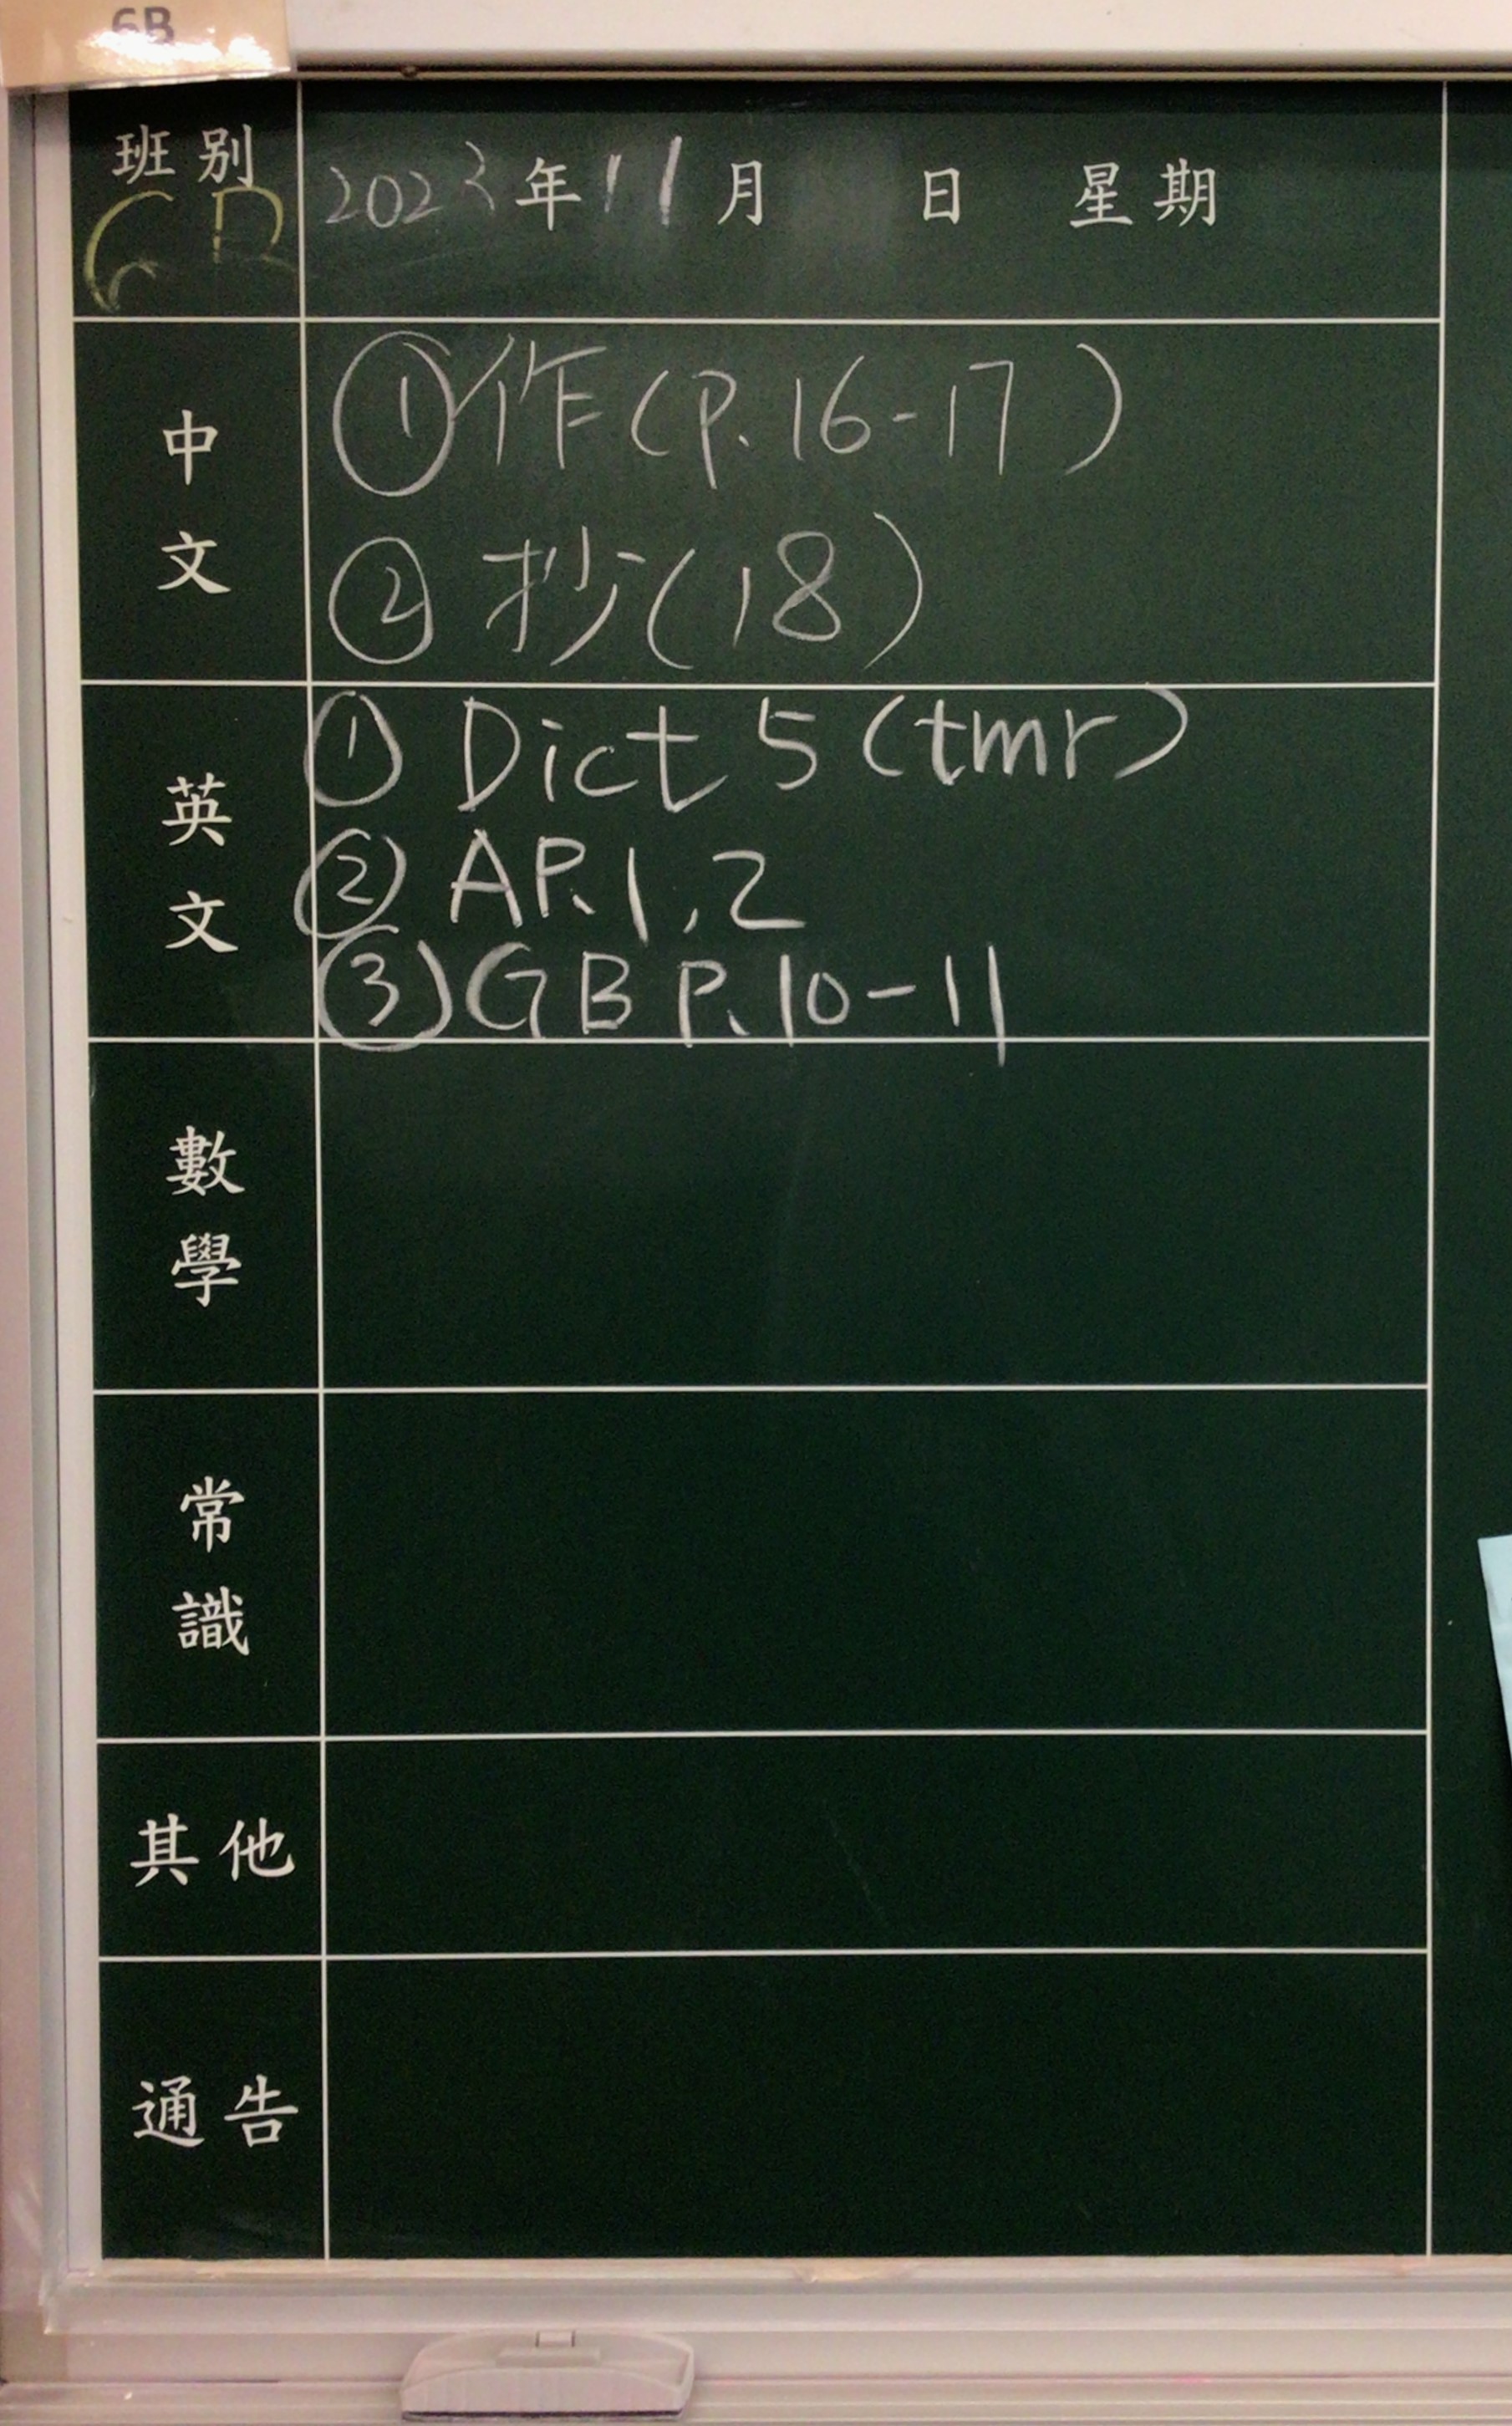 6B
班別
2023年11月 日 星期
中文
①作(P.16-17)
②抄(18)
英文
①Dict 5 (tmr)
②AP.1,2
③GB P.10-11
數學
常識
其他
通告